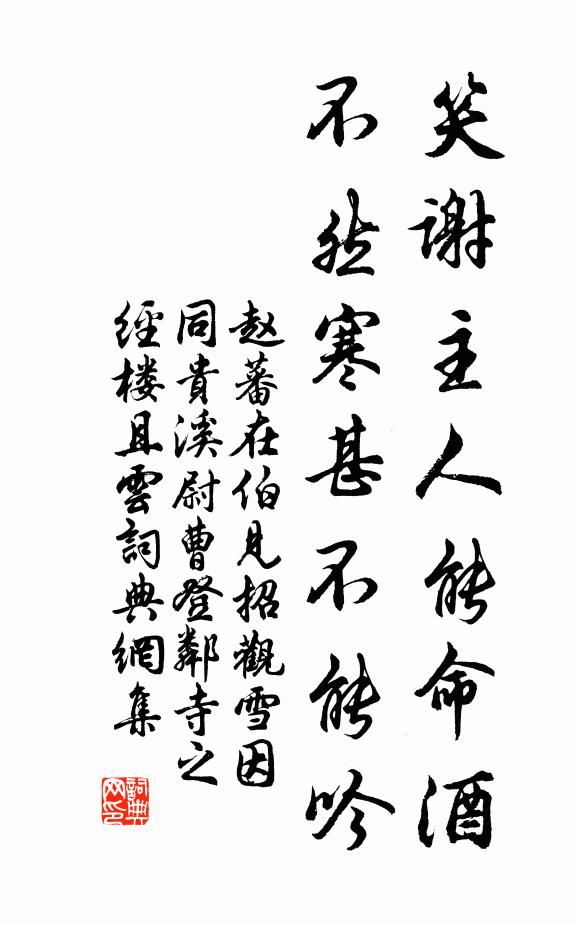 笑谢主人能命酒
不然寒甚不能吟
赵蕃在伯见招觀雪因
同貴溪尉曹登鄰寺之
經楼且雲詞典網集
詞典
网印